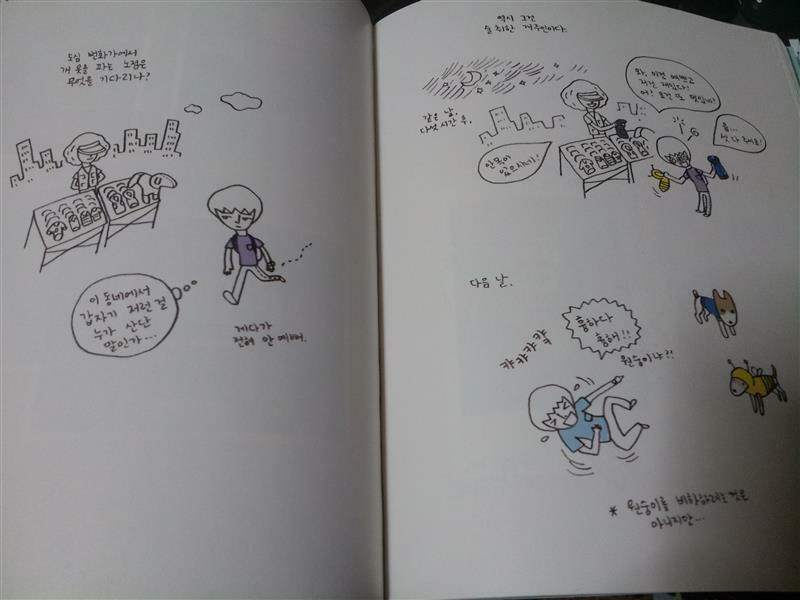 도심 번화가에서
개 옷을 파는 노점은
무엇을 기다리나?
이 동네에서
갑자기 저런 걸
누가 산단
말인가...
게다가
전혀 안 예뻐.
역시 그건
술 취한 개주인이다.
같은 날,
다섯 시간 후.
와, 이건 예쁘고
저건 재밌다!
어! 요건 또 뭡니까!
안목이
있으시네!
흠...
싹 다 주세요!
다음 날.
캬캬캬캭
흉하다
흉해!!
원숭이냐?!
* 원숭이를 비하하려는 것은
아니지만...